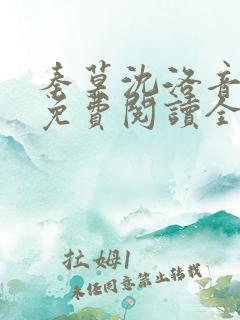 秦草沈洛音
免費閱讀全
拉姆1
未经同意禁止转载